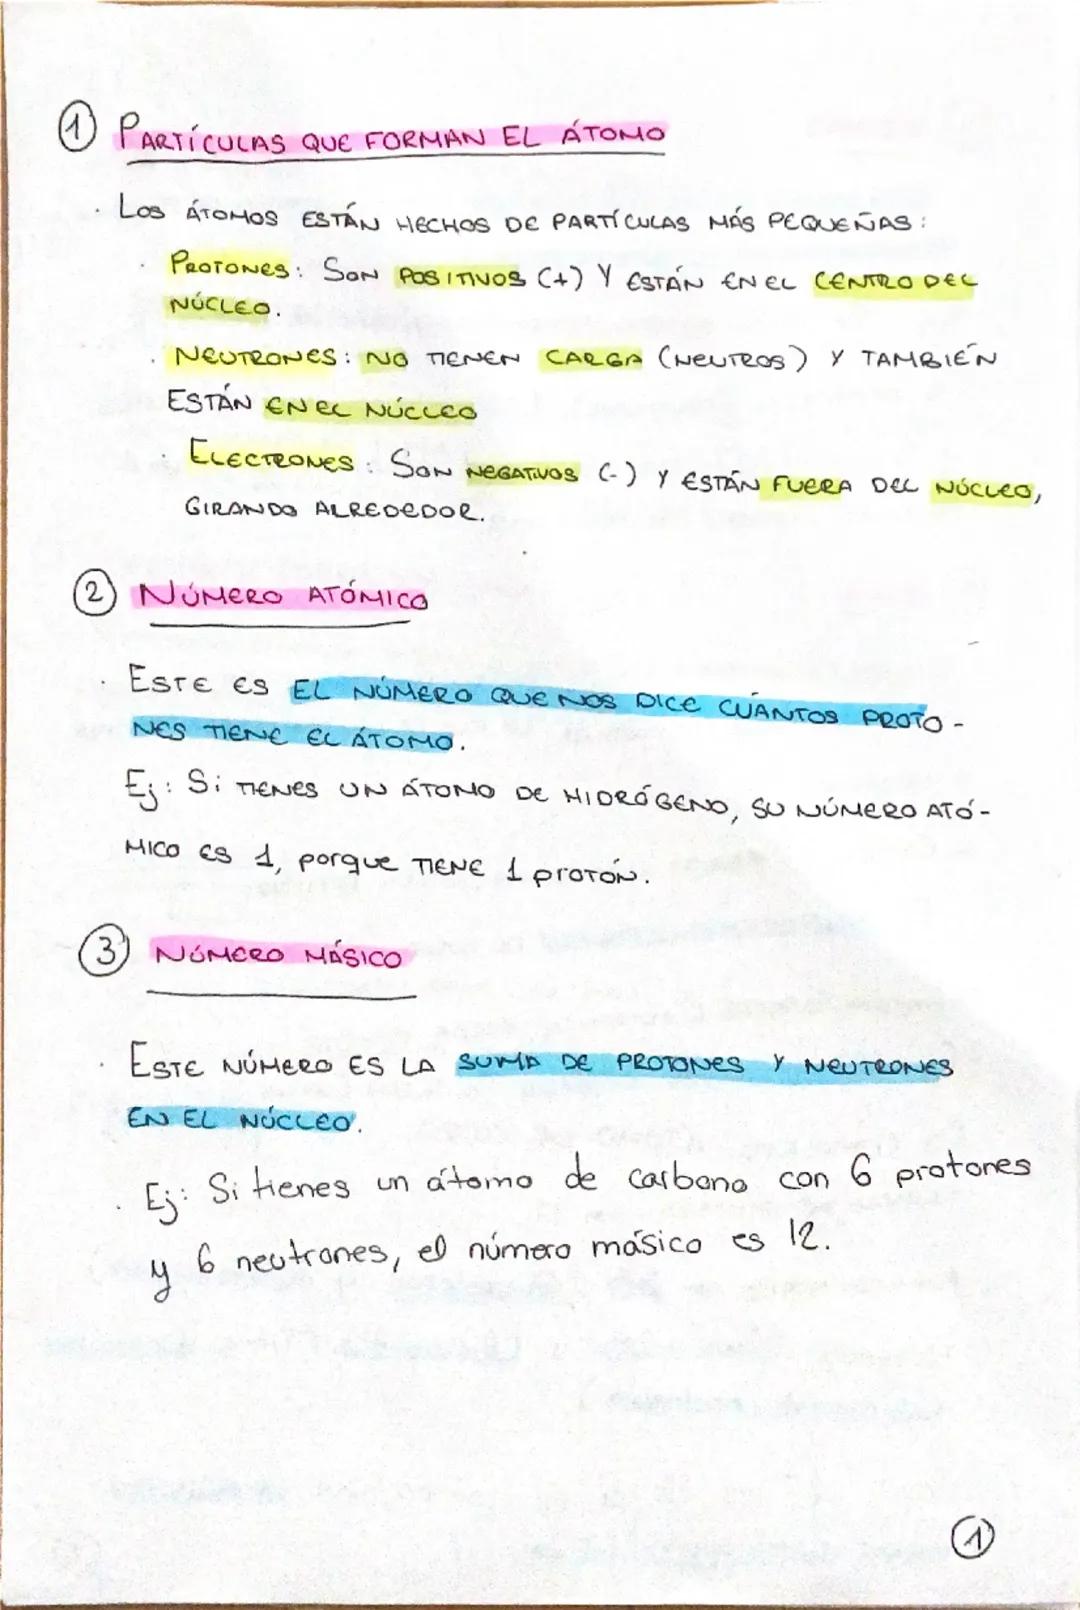 ① PARTÍCULAS QUE FORMAN EL ÁTOMO
· LOS ÁTOMOS ESTÁN HECHOS DE PARTÍCULAS MÁS PEQUEÑAS:
· PROTONES: SON POSITIVOS (+) Y ESTÁN EN EL CENTRO DEL
NÚCLEO.
· NEUTRONES: NO TIENEN CARGA (NEUTROS) Y TAMBIÉN
ESTÁN EN EL NÚCLEO
· ELECTRONES: SON NEGATIVOS (-) Y ESTÁN FUERA DEL NÚCLEO,
GIRANDO ALREDEDOR.
② NÚMERO ATÓMICO
· ESTE ES EL NÚMERO QUE NOS DICE CUÁNTOS PROTO-
NES TIENE EL ÁTOMO.
Ej: Si TIENES UN ÁTOMO DE HIDRÓGENO, SU NÚMERO ATÓ-
MICO ES 1, porque TIENE 1 PROTÓN.
③ NÚMERO MÁSICO
· ESTE NÚMERO ES LA SUMA DE PROTONES Y NEUTRONES
EN EL NÚCLEO.
· Ej: Si tienes un átomo de carbono con 6 protones
y 6 neutrones, el número másico es 12.
①